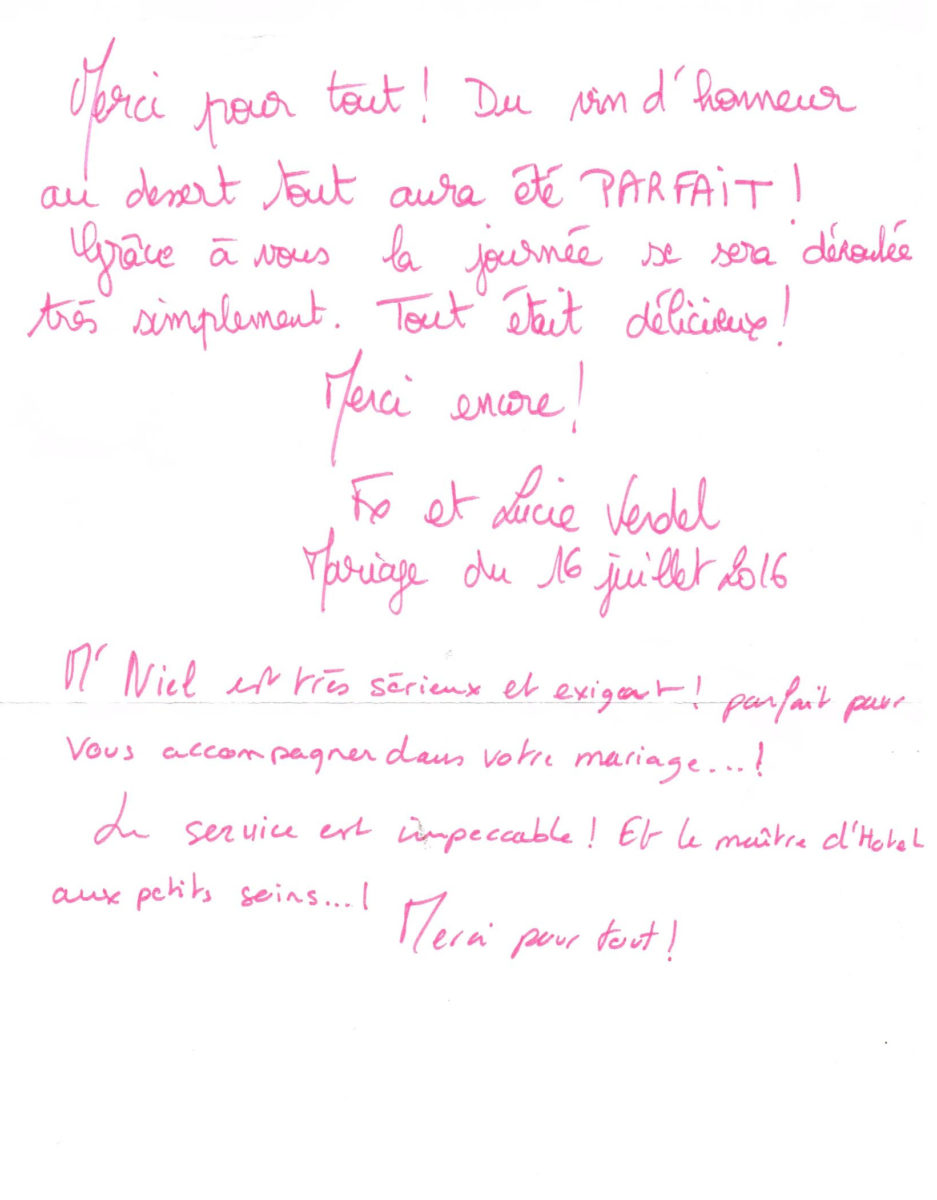 Merci pour tout! Du vin d'honneur
au dessert tout aura été PARFAIT!
Grâce à vous la journée se sera déroulée
très simplement. Tout était délicieux!
Merci encore!
Fx et Lucie Verdel
Mariage du 16 juillet 2016
Mr Niel est très sérieux et exigeant! parfait pour
vous accompagner dans votre mariage...!
Le service est impeccable! Et le maître d'Hotel
aux petits soins...!
Merci pour tout!